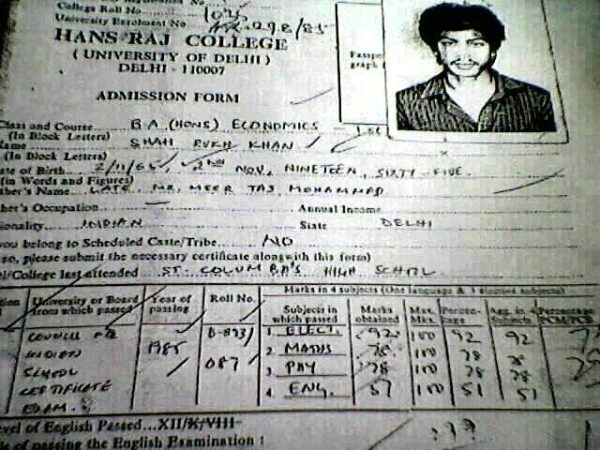 College Roll No. 103
University Enrolment No. 298/85
HANS RAJ COLLEGE
( UNIVERSITY OF DELHI )
DELHI - 110007
Passpo
graph
ADMISSION FORM
Class and Course B.A (HONS) ECONOMICS
(In Block Letters)
Name SHAH RUKH KHAN
(In Block Letters)
ate of Birth 2/11/65, 2nd NOV, NINETEEN, SIXTY-FIVE.
(in Words and Figures)
ther's Name LATE MR. MEER TAJ MOHAMMED
her's Occupation Annual Income
ionality INDIAN State DELHI
you belong to Scheduled Caste/Tribe NO
so, please submit the necessary certificate alongwith this form)
ol/College last attended ST. COLUMBA'S HIGH SCHOOL
Marks in 4 subjects (One language & 3 elective subjects)
University or Board from which passed Year of passing Roll No. Subjects in which passed Marks obtained Max. Mks. Percentage Agg. in 4 Subjects Percentage PCM/PCB
COUNCIL INDIAN SCHOOL CERTIFICATE EXAM. 1985 B-893/087
1. ELECT. 92 100 92 92
2. MATHS 78 100 78 78
3. PHY 78 100 78 78
4. ENG. 51 100 51 51
evel of English Passed...XII/X/VIII
of passing the English Examination :